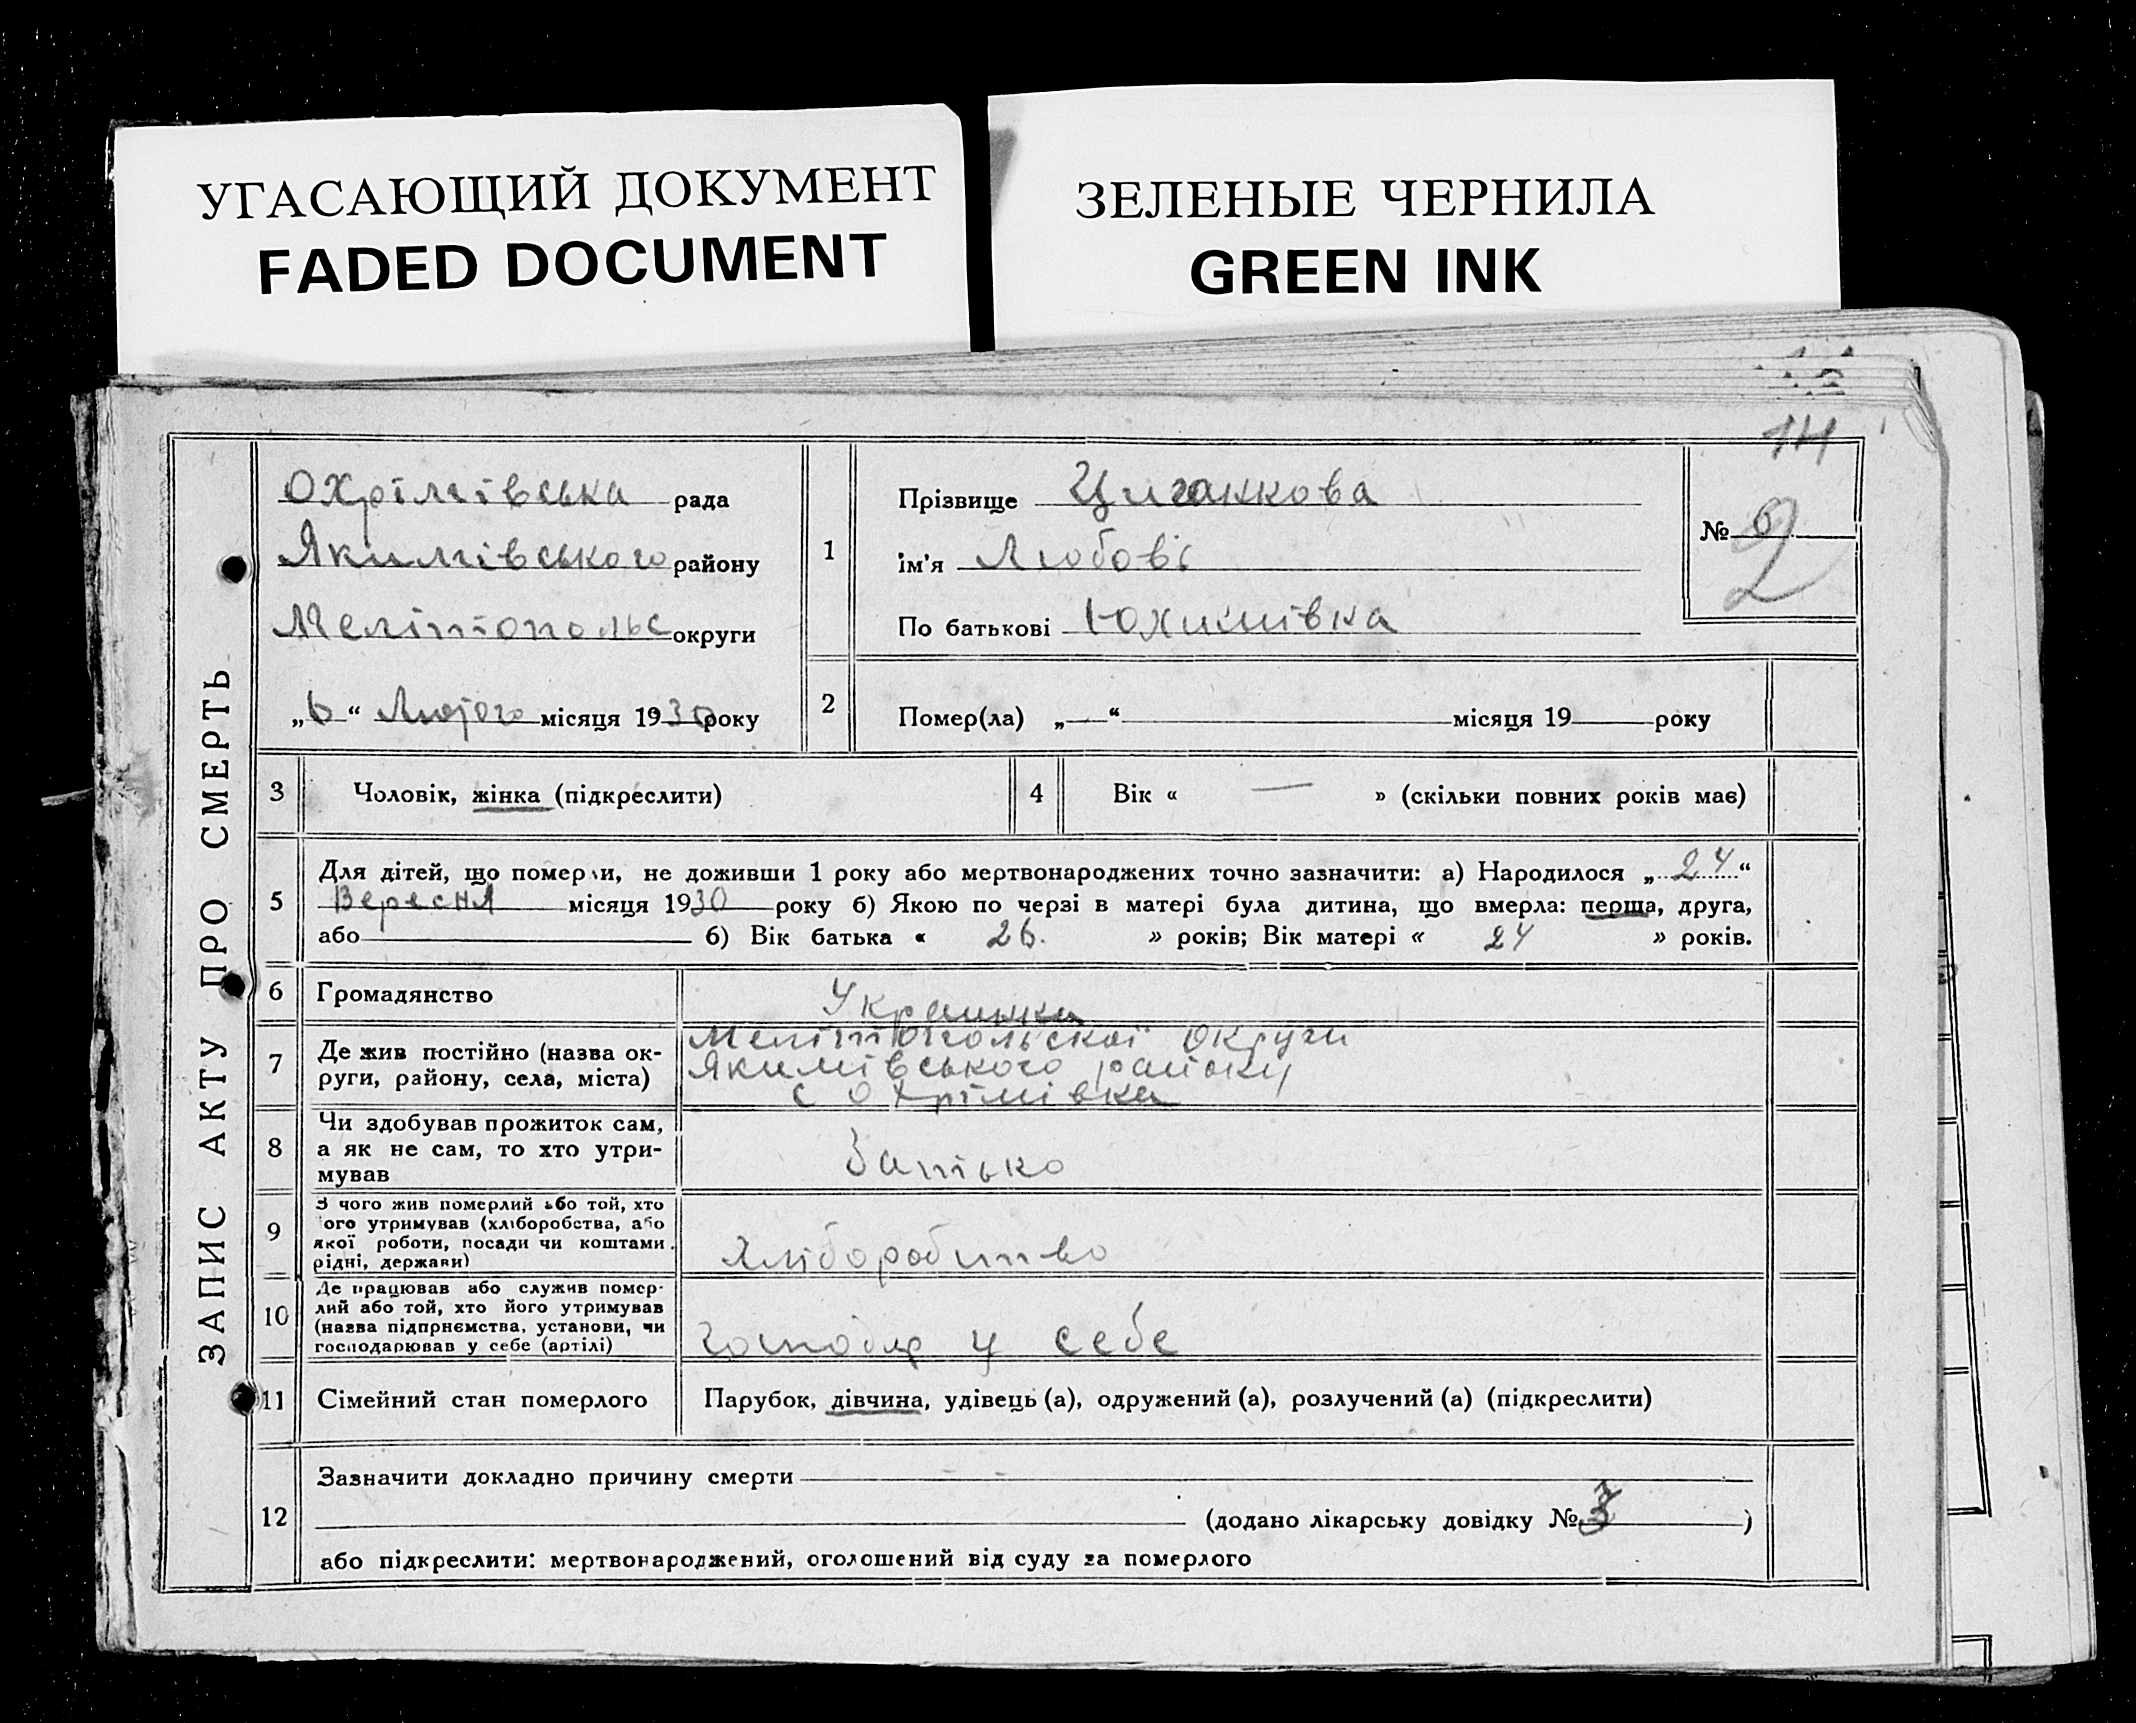 УГАСАЮЩИЙ ДОКУМЕНТ
FADED DOCUMENT
ЗЕЛЕНЫЕ ЧЕРНИЛА
GREEN INK
14
ЗАПИС АКТУ ПРО СМЕРТЬ
Охрімівська рада
Якимівського району
Мелітопольс округи
„6“ Лютого місяця 1930 року
1
Прізвище Циганкова
ім'я Любовь
По батькові Юхимівна
№ 2
2
Помер(ла) „ “ місяця 19 року
3 Чоловік, жінка (підкреслити)
4 Вік « — » (скільки повних років має)
5 Для дітей, що померли, не доживши 1 року або мертвонароджених точно зазначити: а) Народилося „24“
Вересня місяця 1930 року б) Якою по черзі в матері була дитина, що вмерла: перша, друга,
або б) Вік батька « 26. » років; Вік матері « 24 » років.
6 Громадянство Українка
7 Де жив постійно (назва ок-
руги, району, села, міста)
Мелітопольскої Округи
Якимівського району
с Охрімівка
8 Чи здобував прожиток сам,
а як не сам, то хто утри-
мував
Батько
9 З чого жив померлий або той, хто
його утримував (хліборобства, або
якої роботи, посади чи коштами
рідні, держави)
Хліборобство
10 Де працював або служив помер-
лий або той, хто його утримував
(назва підпрнємства, установи, чи
господарював у себе (артілі)
у себе
11 Сімейний стан померлого Парубок, дівчина, удівець (а), одружений (а), розлучений (а) (підкреслити)
12 Зазначити докладно причину смерти
(додано лікарську довідку № 3 )
або підкреслити: мертвонароджений, оголошений від суду за померлого